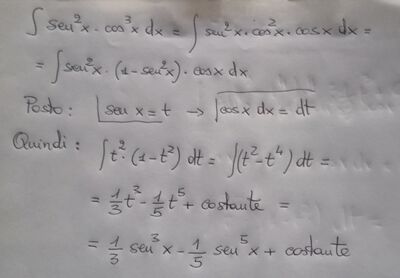 ∫ sen²x · cos³x dx = ∫ sen²x · cos²x · cosx dx =
= ∫ sen²x · (1 - sen²x) · cosx dx
Posto: sen x = t → cosx dx = dt
Quindi: ∫ t² · (1 - t²) dt = ∫ (t² - t⁴) dt =
= 1/3 t³ - 1/5 t⁵ + costante =
= 1/3 sen³x - 1/5 sen⁵x + costante